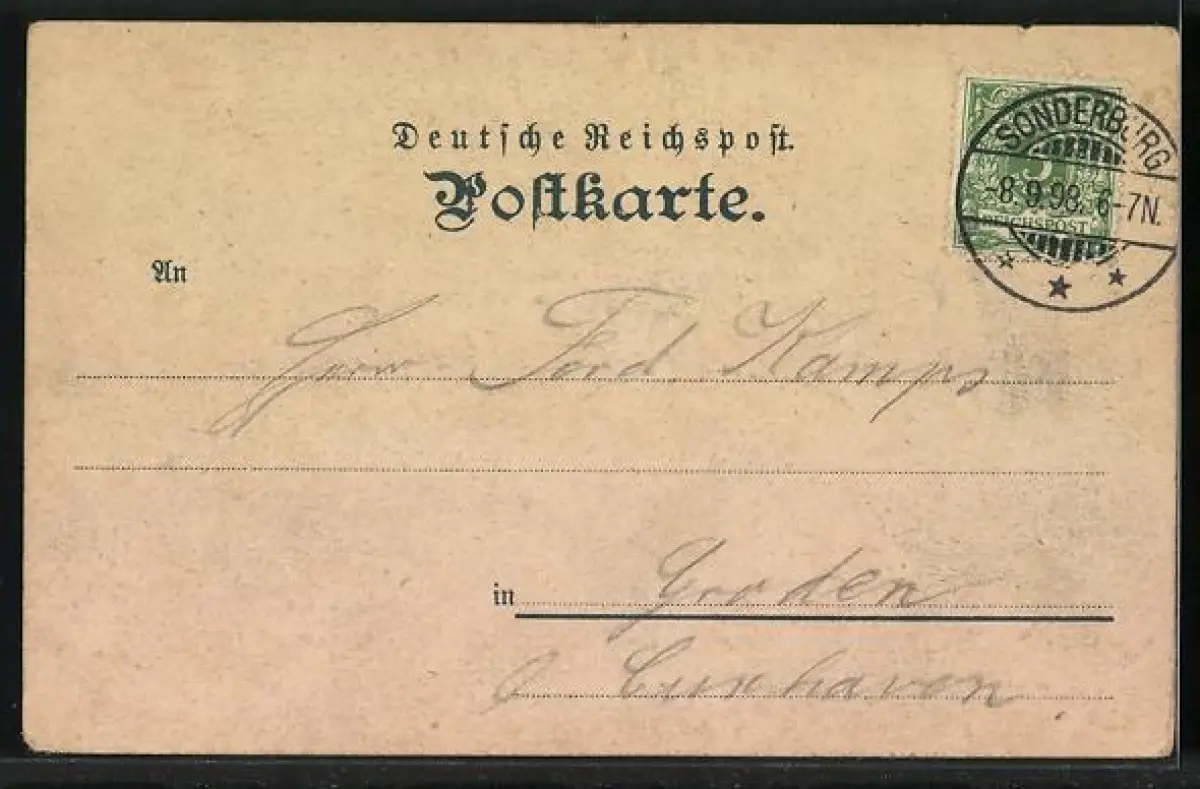 Deutsche Reichspost.
Postkarte.
SONDERBURG
-8.9.98. 6-7N.
5
REICHSPOST
An
Herrn Ferd. Kamps
in Groden
Cuxhaven.